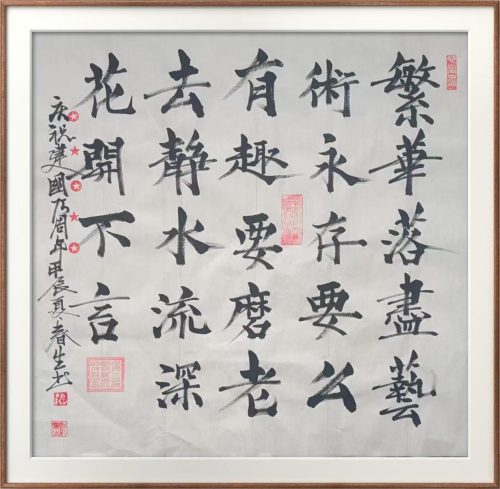 繁華落盡藝
術永存要么
有趣要磨老
去靜水流深
花開不言
庆祝建國75周年甲辰夏春生书